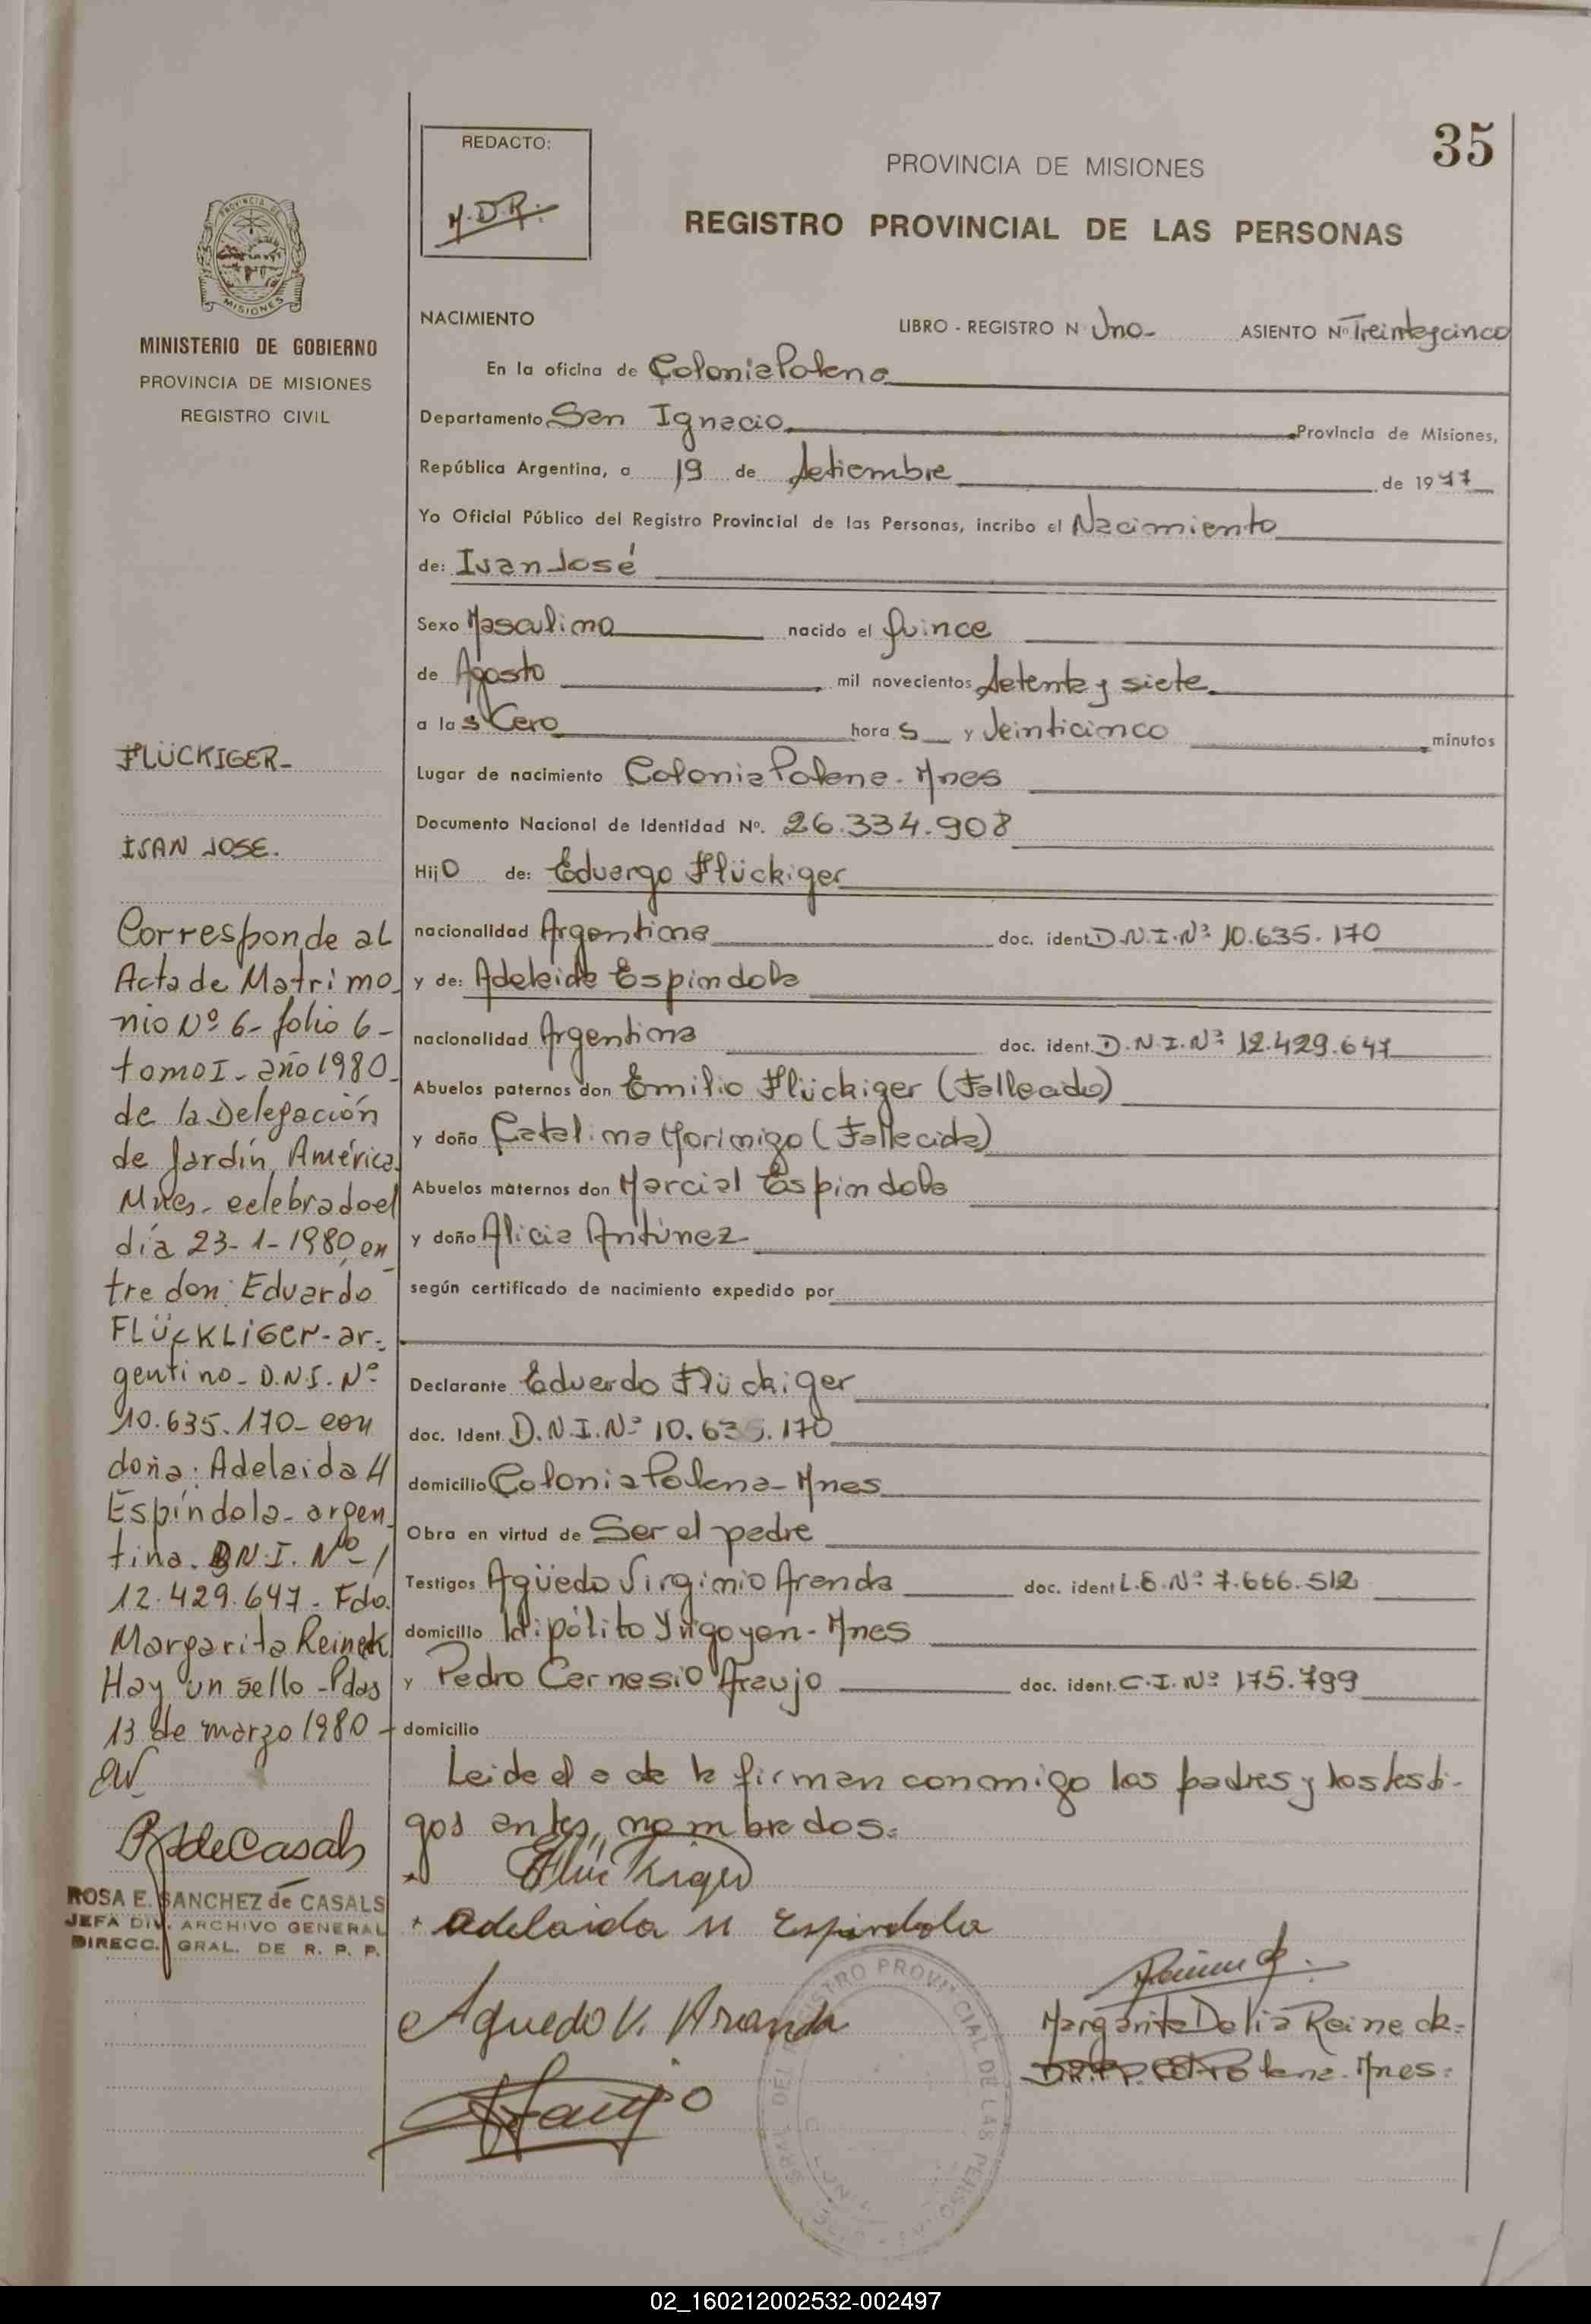 35
REDACTO:
M.D.R.
PROVINCIA DE MISIONES
REGISTRO PROVINCIAL DE LAS PERSONAS
PROVINCIA DE
MISIONES
MINISTERIO DE GOBIERNO
PROVINCIA DE MISIONES
REGISTRO CIVIL
NACIMIENTO LIBRO - REGISTRO N Uno- ASIENTO Nº Treintaycinco
En la oficina de Colonia Polana
Departamento San Ignacio Provincia de Misiones,
República Argentina, a 19 de Setiembre de 1977
Yo Oficial Público del Registro Provincial de las Personas, incribo el Nacimiento
de: Ivan José
Sexo Masculino nacido el quince
de Agosto mil novecientos setenta y siete
a las Cero horas y Veinticinco minutos
Lugar de nacimiento Colonia Polana - Mnes
Documento Nacional de Identidad Nº. 26.334.908
Hijo de: Eduargo Flückiger
nacionalidad Argentina doc. ident D.N.I.Nº 10.635.170
y de: Adelaida Espindola
nacionalidad Argentina doc. ident. D.N.I.Nº 12.429.647
Abuelos paternos don Emilio Flückiger (Fallecido)
y doña Catalina Morinigo (Fallecida)
Abuelos maternos don Marcial Espindola
y doña Alicia Antúnez
según certificado de nacimiento expedido por
Declarante Eduardo Flückiger
doc. Ident. D.N.I.Nº 10.635.170
domicilio Colonia Polana - Mnes
Obra en virtud de Ser el padre
Testigos Agüedo Virginio Aranda doc. ident L.E.Nº 7.666.512
domicilio Hipólito Yrigoyen - Mnes
y Pedro Cernesio Araujo doc. ident. C.I.Nº 175.799
domicilio
Leida el a cta la firman conmigo los padres y los testi-
gos antes nombrados.
Flückiger
Adelaida M Espindola
Aguedo V. Aranda
Araujo
Margarita Delia Reineck.
Polana - Mnes.
REGISTRO PROVINCIAL DE LAS PERSONAS
FLÜCKIGER-
IVAN JOSE.
Corresponde al
Acta de Matrimo-
nio Nº 6- folio 6-
tomo I- año 1980-
de la Delegación
de Jardín América
Mnes- celebrado el
día 23-1-1980 en-
tre don: Eduardo
FLÜCKLIGER- ar-
gentino- D.N.I. Nº
10.635.170- con
doña: Adelaida M
Espíndola- argen-
tina. D.N.I. Nº
12.429.647- Fdo.
Margarita Reineck
Hay un sello - Pdas
13 de marzo 1980-
RdeCasals
ROSA E. SANCHEZ de CASALS
JEFA DIV. ARCHIVO GENERAL
DIRECC. GRAL. DE R. P. P.
02_160212002532-002497